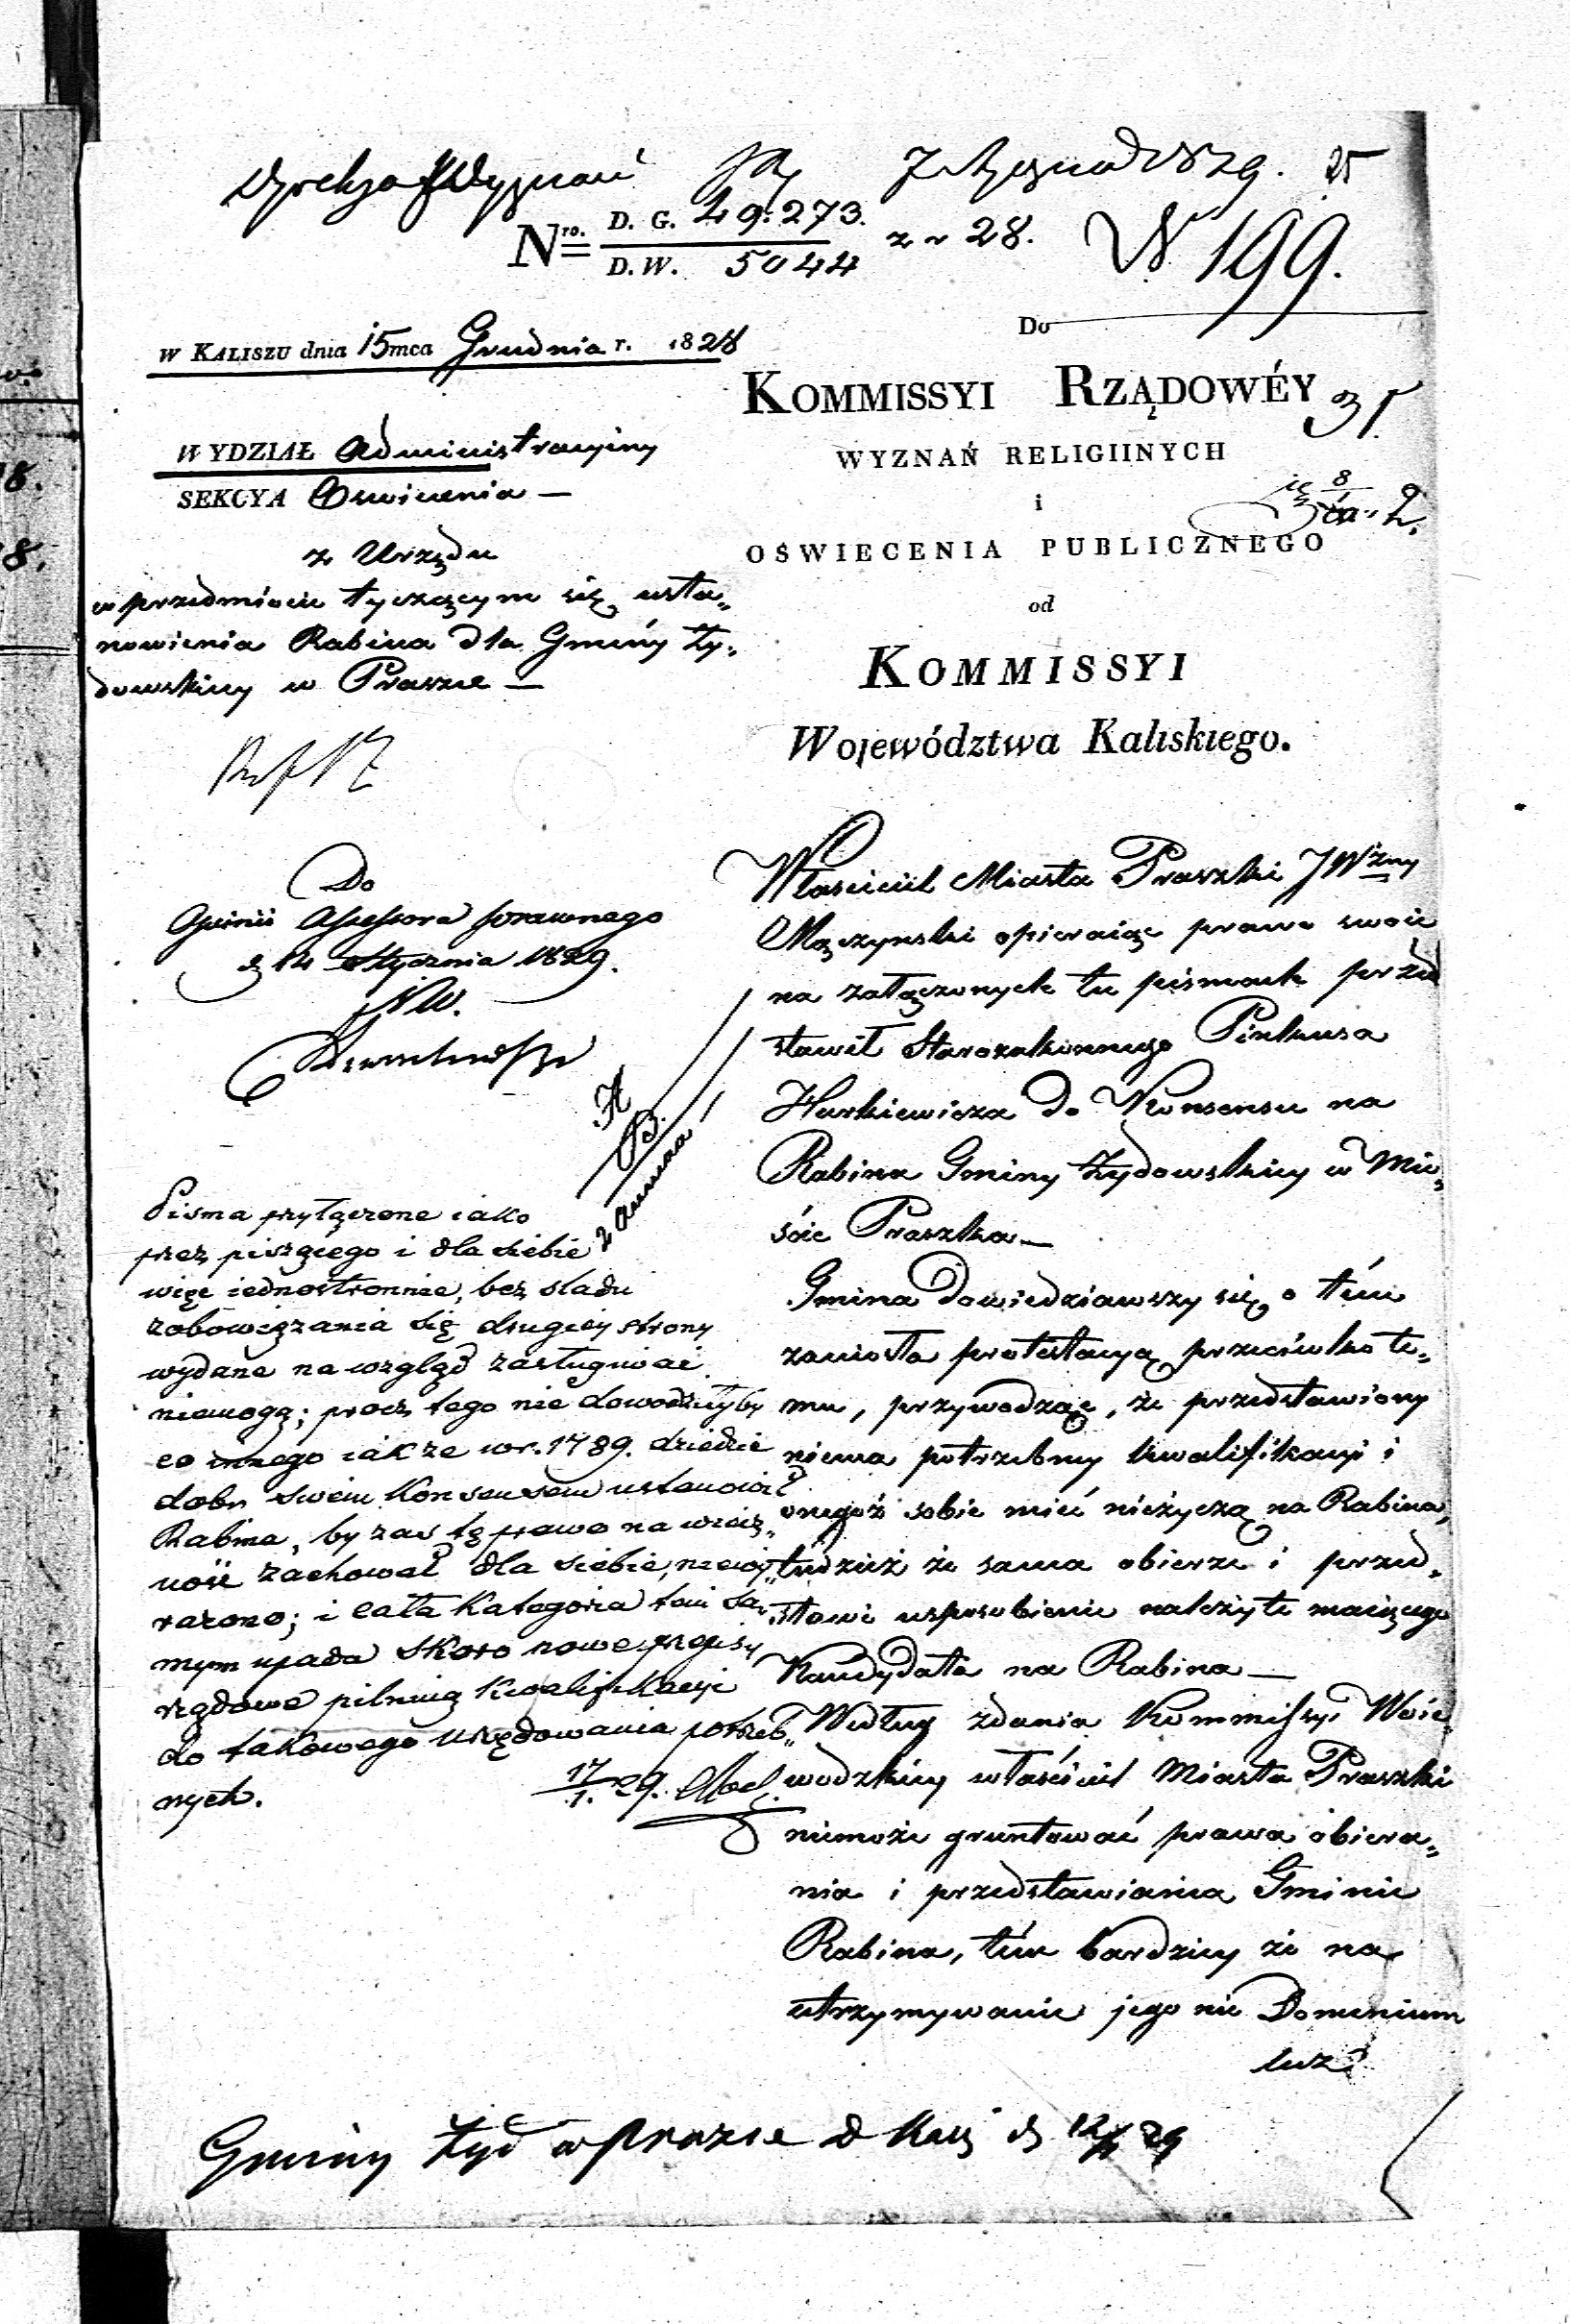 Dyrekcya Wyznań 7 Stycznia 1829. 25
Nro. D. G. 49.273. z r 28. N 199.
D. W. 5044
Do
W KALISZU dnia 15 mca Grudnia r. 1828
KOMMISSYI RZĄDOWÉY
31.
WYDZIAŁ Administracyiny
WYZNAŃ RELIGIINYCH
SEKCYA Oswiecenia —
i
OŚWIECENIA PUBLICZNEGO
z Urzędu
w przedmiocie tyczącym się usta„
nowienia Rabina dla Gminy Ży„
dowskiey w Praszce —
od
KOMMISSYI
Województwa Kaliskiego.
Do
Opinii Assessora prawnego
d 14 Stycznia 1829.
A
B.
2 Annexa
Pisma przyłączone iako
przez piszącego i dla siebie
więc iednostronnie, bez sladu
zobowiązania się drugiey strony
wydane na wzgląd zasługiwać
niemogą; procz tego nie dowodziłyby
co innego iak że w r. 1789. dziedzic
dobr swem Konsensem ustanowił
Rabina, by zas tę prawo na wiecz„
ność zachował dla siebie, niewy„
rażono; i cała Kategoria tem sa„
mym upada skoro nowe przepisy
rządowe pilnuią kwalifikacyi
do takowego urzędowania potrzeb„
nych.
17/1. 29.
Właściciel Miasta Praszki JWżny
Mączynski opieraiąc prawo swoie
na załączonych tu pismach przed
stawił Starozakonnego Pinkusa
Harkiewicza do Konsensu na
Rabina Gminy Żydowskiey w Mie„
ście Praszka —
Gmina dowiedziawszy się o tém
zaniosła protestacyą przeciwko te„
mu, przywodząc, że przedstawiony
niema potrzebney kwalifikacyi i
onegoż sobie mieć nieżyczą na Rabina,
tudzież że sama obierze i przed„
stawi usposobienie należyte maiącego
Kandydata na Rabina —
Według zdania Kommissyi Woie„
wodzkiey właściciel Miasta Praszki
niemoże gruntować prawa obiera„
nia i przedstawiania Gminie
Rabina, tém bardziey że na
utrzymywanie jego nie Dominium
lecz
Gminy Żyd w Praszce